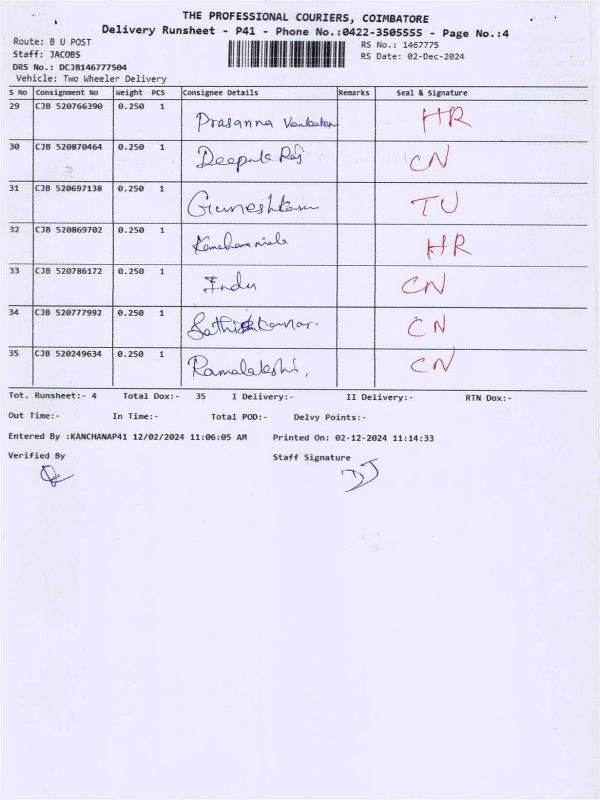 THE PROFESSIONAL COURIERS, COIMBATORE
Delivery Runsheet - P41 - Phone No.:0422-3505555 - Page No.:4
Route: B U POST RS No.: 1467775
Staff: JACOBS RS Date: 02-Dec-2024
DRS No.: DCJB146777504
Vehicle: Two Wheeler Delivery
S No Consignment No Weight PCS Consignee Details Remarks Seal & Signature
29 CJB 520766390 0.250 1 Prasanna Venkatan HR
30 CJB 520870464 0.250 1 Deepak Raj CN
31 CJB 520697138 0.250 1 TU
32 CJB 520869702 0.250 1 HR
33 CJB 520786172 0.250 1 Indu CN
34 CJB 520777992 0.250 1 CN
35 CJB 520249634 0.250 1 CN
Tot. Runsheet:- 4 Total Dox:- 35 I Delivery:- II Delivery:- RTN Dox:-
Out Time:- In Time:- Total POD:- Delvy Points:-
Entered By :KANCHANAP41 12/02/2024 11:06:05 AM Printed On: 02-12-2024 11:14:33
Verified By Staff Signature